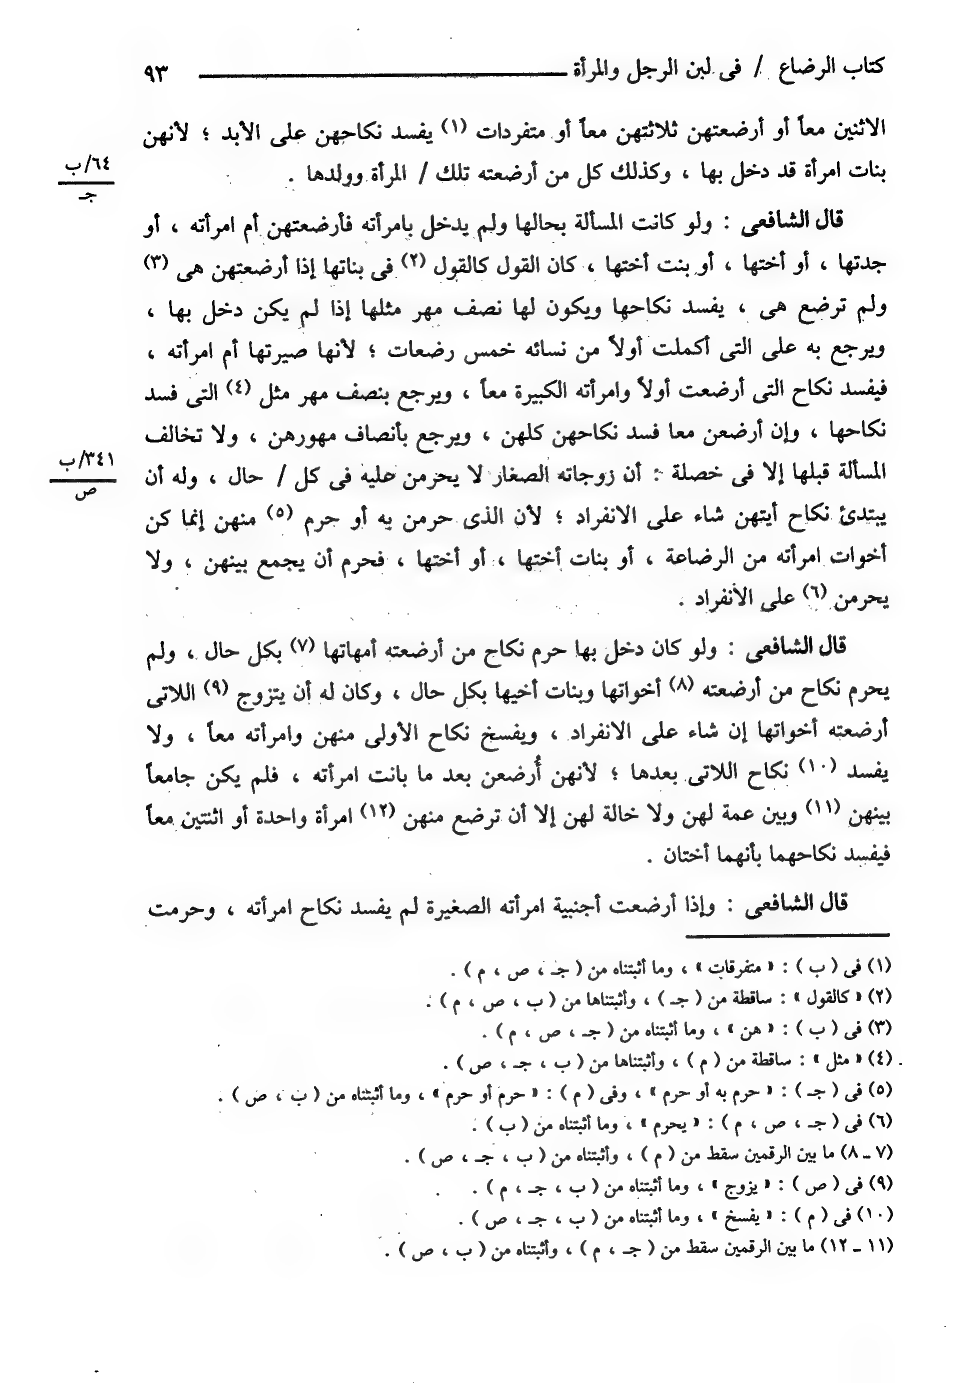 كتاب الرضاع / فى لبن الرجل والمرأة ٩٣
الاثنين معاً أو أرضعتهن ثلاثتهن معاً أو متفردات (١) يفسد نكاحهن على الأبد ؛ لأنهن
بنات امرأة قد دخل بها ، وكذلك كل من أرضعته تلك / المرأة وولدها .
٦٤/ب
جـ
قال الشافعى : ولو كانت المسألة بحالها ولم يدخل بامرأته فأرضعتهن أم امرأته ، أو
جدتها ، أو أختها ، أو بنت أختها ، كان القول كالقول (٢) فى بناتها إذا أرضعتهن هى (٣)
ولم ترضع هى ، يفسد نكاحها ويكون لها نصف مهر مثلها إذا لم يكن دخل بها ،
ويرجع به على التى أكملت أولاً من نسائه خمس رضعات ؛ لأنها صيرتها أم امرأته ،
فيفسد نكاح التى أرضعت أولاً وامرأته الكبيرة معاً ، ويرجع بنصف مهر مثل (٤) التى فسد
نكاحها ، وإن أرضعن معا فسد نكاحهن كلهن ، ويرجع بأنصاف مهورهن ، ولا تخالف
المسألة قبلها إلا فى خصلة : أن زوجاته الصغار لا يحرمن عليه فى كل / حال ، وله أن
٣٤١/ب
ص
يبتدئ نكاح أيتهن شاء على الانفراد ؛ لأن الذى حرمن به أو جرم (٥) منهن إنما كن
أخوات امرأته من الرضاعة ، أو بنات أختها ، أو أختها ، فحرم أن يجمع بينهن ، ولا
يحرمن (٦) على الانفراد .
قال الشافعى : ولو كان دخل بها حرم نكاح من أرضعته أمهاتها (٧) بكل حال ، ولم
يحرم نكاح من أرضعته (٨) أخواتها وبنات أخيها بكل حال ، وكان له أن يتزوج (٩) اللاتى
أرضعته أخواتها إن شاء على الانفراد ، ويفسخ نكاح الأولى منهن وامرأته معاً ، ولا
يفسد (١٠) نكاح اللاتى بعدها ؛ لأنهن أُرضعن بعد ما بانت امرأته ، فلم يكن جامعاً
بينهن (١١) وبين عمة لهن ولا خالة لهن إلا أن ترضع منهن (١٢) امرأة واحدة أو اثنتين معاً
فيفسد نكاحهما بأنهما أختان .
قال الشافعى : وإذا أرضعت أجنبية امرأته الصغيرة لم يفسد نكاح امرأته ، وحرمت
(١) فى ( ب ) : « متفرقات » ، وما أثبتناه من ( جـ ، ص ، م ) .
(٢) « كالقول » : ساقطة من ( جـ ) ، وأثبتناها من ( ب ، ص ، م ) .
(٣) فى ( ب ) : « هن » ، وما أثبتناه من ( جـ ، ص ، م ) .
(٤) « مثل » : ساقطة من ( م ) ، وأثبتناها من ( ب ، جـ ، ص ) .
(٥) فى ( جـ ) : « حرم به أو حرم » ، وفى ( م ) : « حرم أو حرم » ، وما أثبتناه من ( ب ، ص ) .
(٦) فى ( جـ ، ص ، م ) : « يحرم » ، وما أثبتناه من ( ب ) .
(٧ ـ ٨) ما بين الرقمين سقط من ( م ) ، وأثبتناه من ( ب ، جـ ، ص ) .
(٩) فى ( ص ) : « يزوج » ، وما أثبتناه من ( ب ، جـ ، م ) .
(١٠) فى ( م ) : « يفسخ » ، وما أثبتناه من ( ب ، جـ ، ص ) .
(١١ ـ ١٢) ما بين الرقمين سقط من ( جـ ، م ) ، وأثبتناه من ( ب ، ص ) .